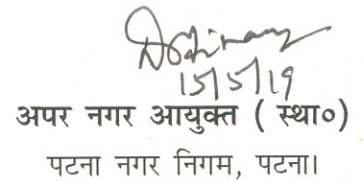 15/5/19
अपर नगर आयुक्त ( स्था० )
पटना नगर निगम, पटना।